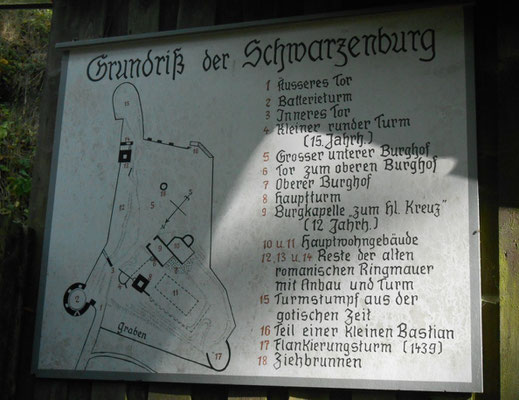 Grundriß der Schwarzenburg
1 Äusseres Tor
2 Batterieturm
3 Inneres Tor
4 Kleiner runder Turm
(15. Jahrh.)
5 Grosser unterer Burghof
6 Tor zum oberen Burghof
7 Oberer Burghof
8 Hauptturm
9 Burgkapelle „zum hl. Kreuz"
(12 Jahrh.)
10 u. 11 Hauptwohngebäude
12, 13 u. 14 Reste der alten
romanischen Ringmauer
mit Anbau und Turm
15 Turmstumpf aus der
gotischen Zeit
16 Teil einer kleinen Bastian
17 Flankierungsturm (1439)
18 Ziehbrunnen
Graben
17